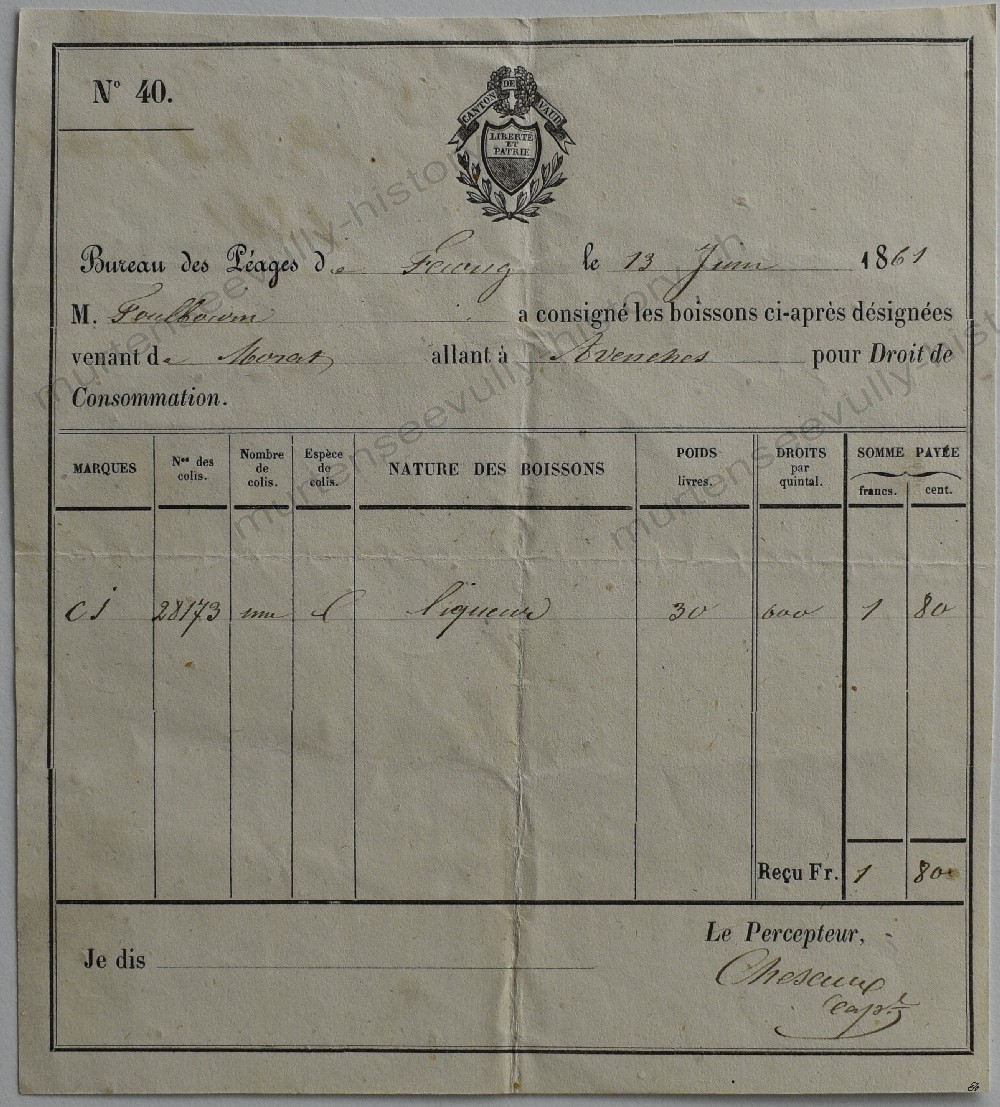 N° 40.
CANTON DE VAUD
LIBERTÉ
ET
PATRIE
Bureau des Péages de Faoug le 13 Juin 1861
M. a consigné les boissons ci-après désignées
venant de Morat allant à Avenches pour Droit de
Consommation.
MARQUES Nos des colis. Nombre de colis. Espèce de colis. NATURE DES BOISSONS POIDS livres. DROITS par quintal. SOMME PAYÉE francs. cent.
CJ 28173 une liqueur 30 600 1 80
Reçu Fr. 1 80
Le Percepteur,
Je dis
murtenseevully-history.ch
murtenseevully-history.ch
murtenseevully-history